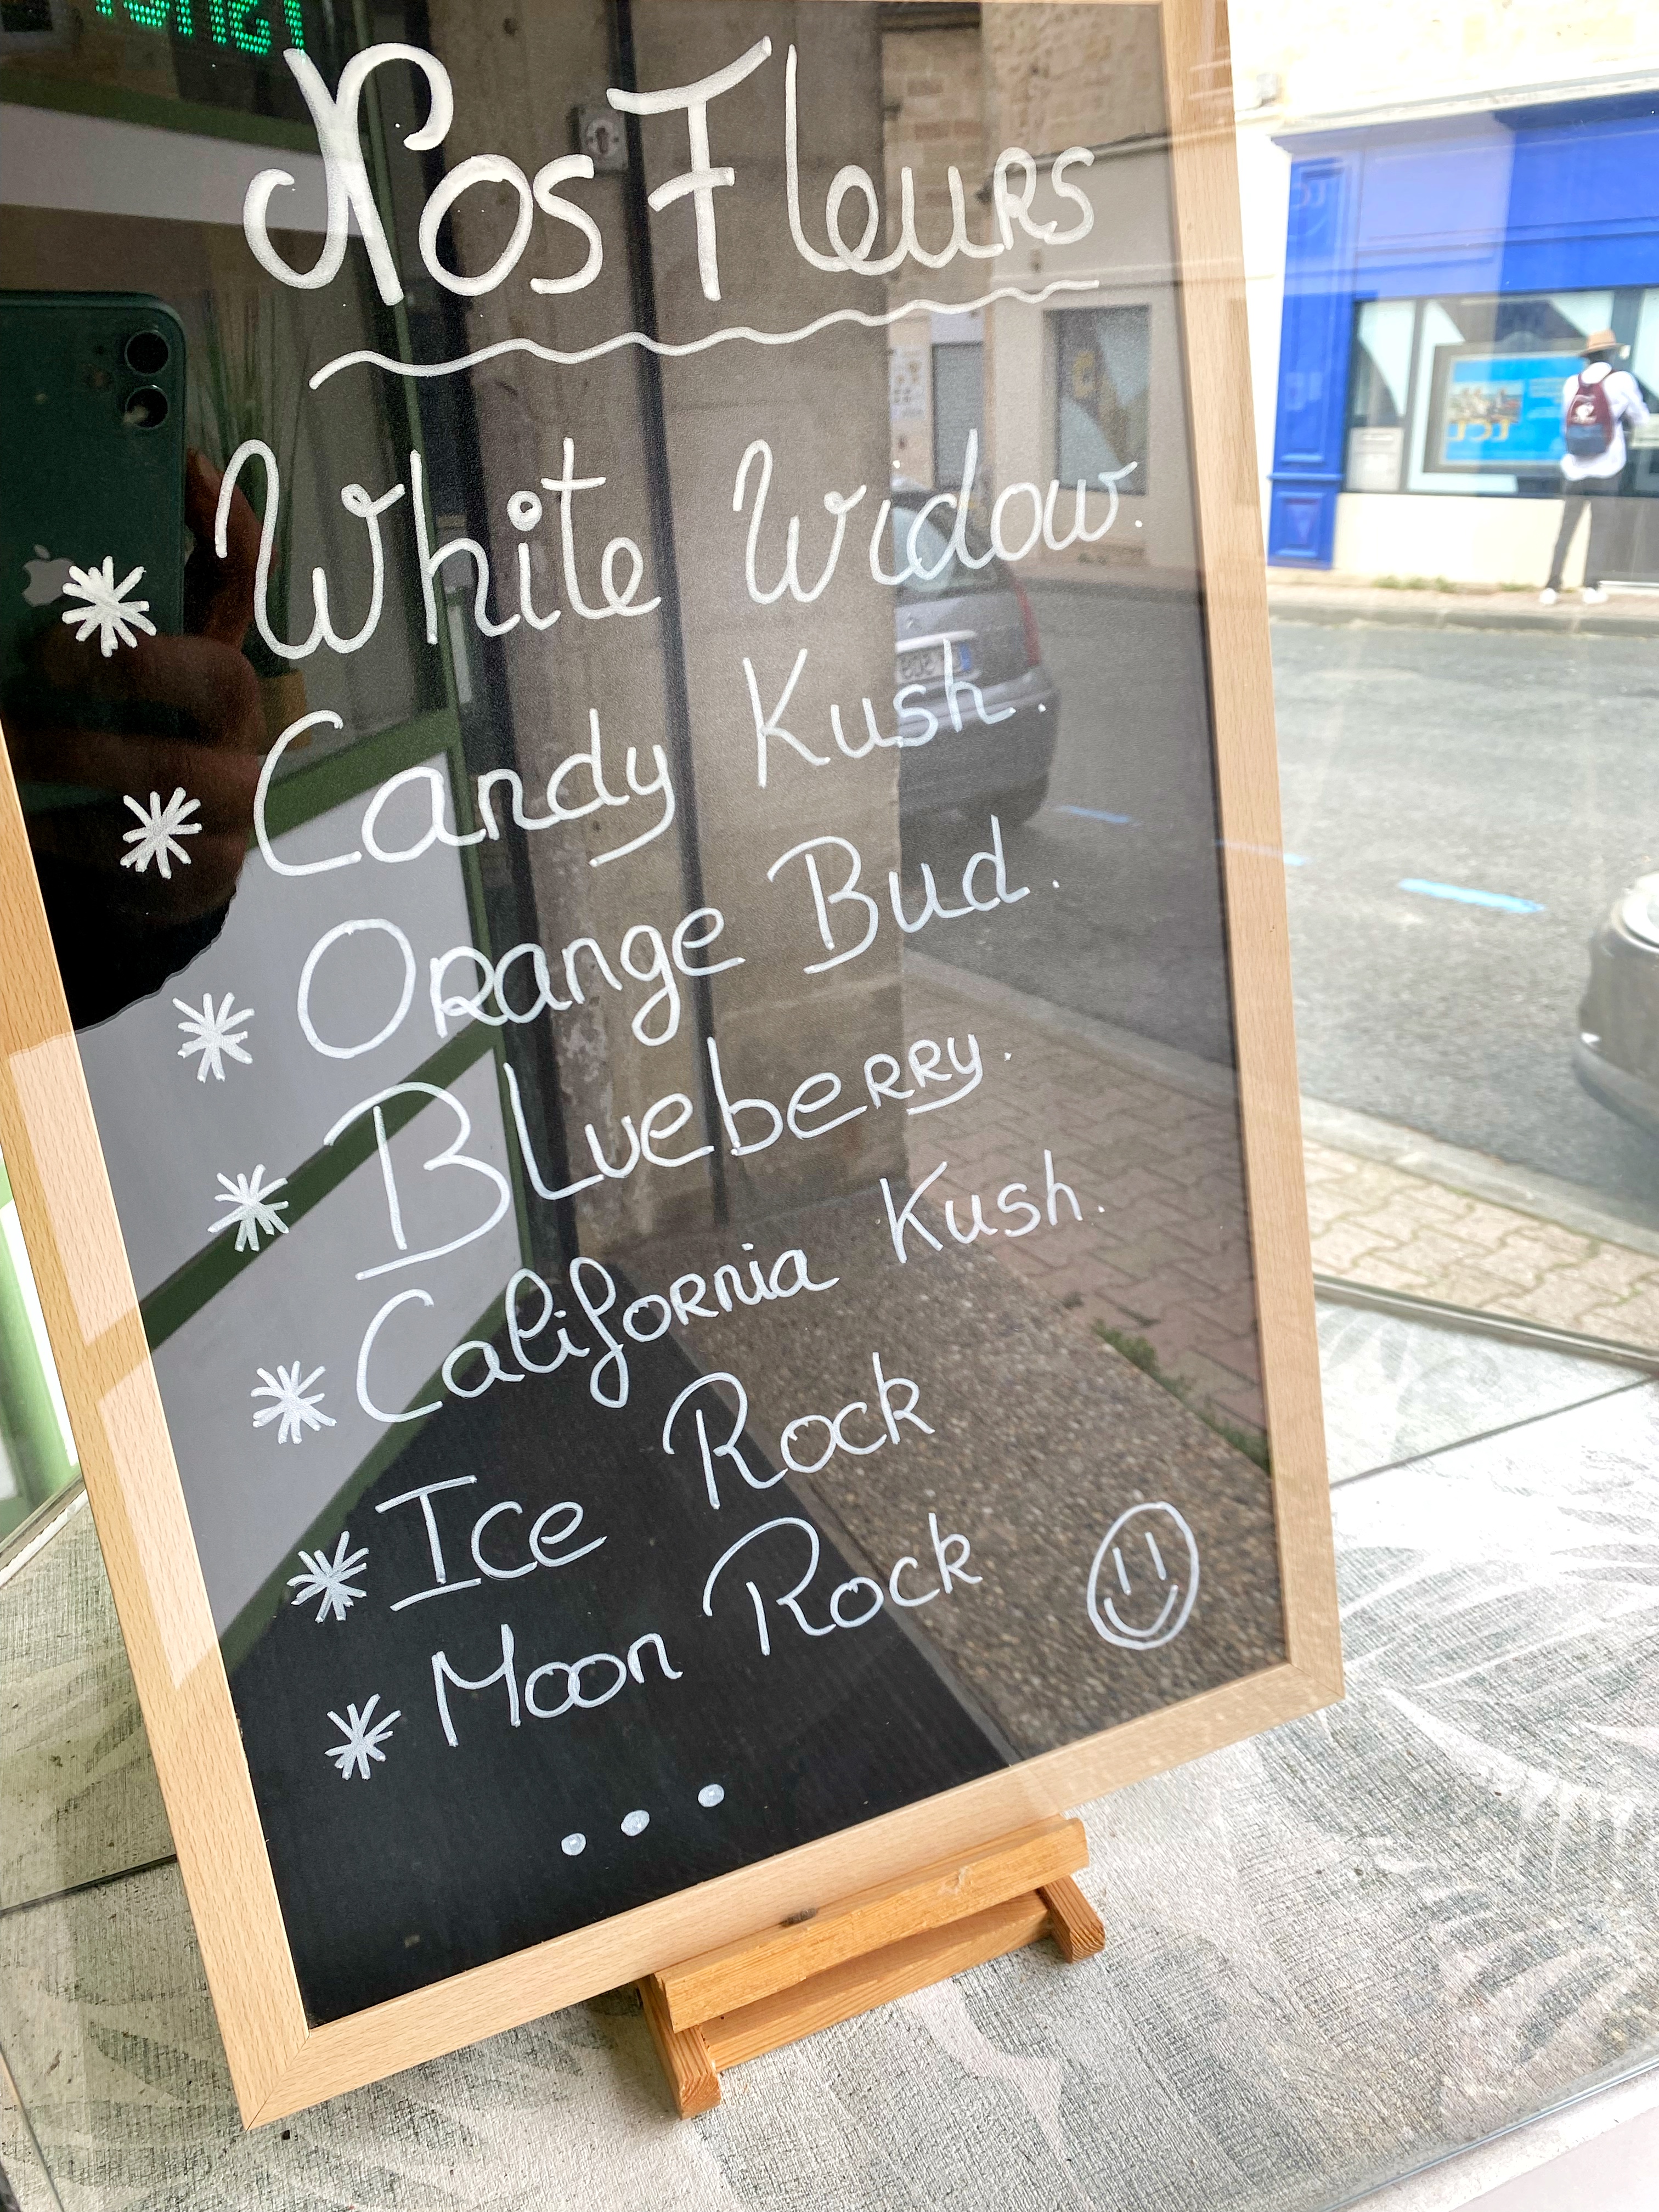 Nos Fleurs
* White Widow.
* Candy Kush.
* Orange Bud.
* Blueberry.
* California Kush.
* Ice Rock
* Moon Rock
...